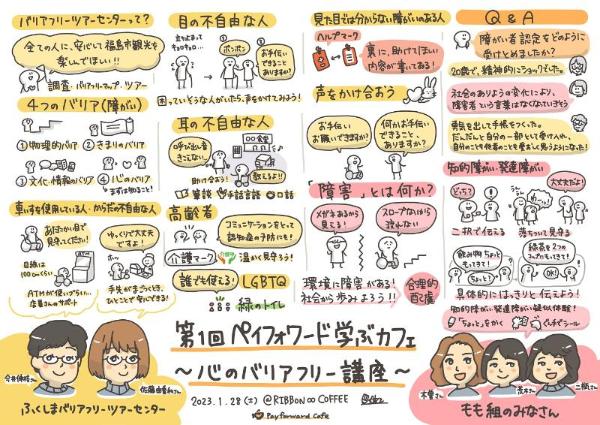 バリアフリーツアーセンターって?
全ての人に、安心して福島市観光を
楽しんでほしい!!
調査・バリアフリーマップ・ツアー
4つのバリア(障がい)
①物理的バリア ②きまりのバリア
③文化・情報のバリア ④心のバリア
まずは知ること!
車いすを使用している人・からだの不自由な人
あたたかい目で
見守ってください!
目線は
100cmくらい
ATMが使いづらい…
店員さんのサポート
ゆっくりで大丈夫
ですよ!
ホッ
ひとことで安心できる!
目の不自由な人
立ち止まって
キョロキョロ…
ポンポン
お手伝い
できること
ありますか?
困っていそうな人がいたら、声をかけてみよう!
耳の不自由な人
呼び出し音
きこえない…
助け合う!
教えるよ!!
筆談 手話言語 口話
高齢者
コミュニケーションをとって
認知症の予防にも!
介護マーク
温かく見守ろう!
誰でも使える!
LGBTQ
緑のトイレ
見た目では分からない障がいのある人
ヘルプマーク
裏に、助けてほしい
内容が書いてある!
声をかけ合おう
お手伝い
お願いできますか?
何かお手伝い
できること、
ありますか?
「障害」とは何か?
メガネあるから
見てる!
スロープないから
渡れない
環境に障害がある!
社会から歩みよろう!!
合理的
配慮
Q & A
障がい者認定をどのように
受けとめましたか?
20歳で、精神的にショックでした。
社会のありようの変化により、
障害者という言葉はなくなっていきそう
勇気を出して手帳をつくった。
だんだんと自分の一部として受け入れ、
知的障がい・発達障がい
どっち?
二択で伝える
大丈夫だよ!
落ちついて見守る
飲み物ちょっと
もってきて!
ちょっと?
緑茶を2つ
OK!
具体的にはっきりと伝えよう!
知的障がい・発達障がい疑似体験!
「ちょっと」をかく
イメージシール
第1回 ペイフォワード学ぶカフェ
～心のバリアフリー講座～
2023.1.28(土) @RIBBON∞COFFEE
Pay forward Cafe
佐藤由香利さん
ふくしまバリアフリーツアーセンター
木曽さん
茂木さん
二瓶さん
もも組のみなさん